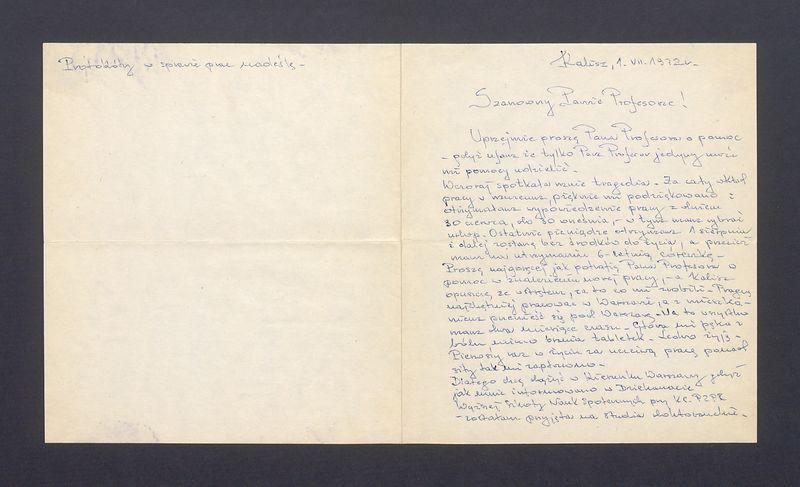 Protokóły w sprawie prac nadeślę -
Kalisz, 1. VII. 1972 r.
Szanowny Panie Profesorze!
Uprzejmie proszę Pana Profesora o pomoc
- gdyż ufam że tylko Pan Profesor jedyny może
mi pomocy udzielić.
Wczoraj spotkała mnie tragedia - Za cały wkład
pracy w muzeum, pięknie mi podziękowano i
otrzymałam wypowiedzenie pracy z dniem
30 czerwca, do 30 września, - w tym mam wybrać
urlop. Ostatnie pieniądze otrzymam 1 sierpnia
i dalej zostanę bez środków do życia, a przecież
mam na utrzymaniu 6-letnią córeczkę -
Proszę najgoręcej jak potrafię Pana Profesora o
pomoc w znalezieniu nowej pracy, - a Kalisz
opuszczę, za to co mi zrobili - Pragnę
najchętniej pracować w Warszawie, a z
przenieść się pod Warszawę - Na to wszystko
mam dwa miesiące czasu - Głowa mi pęka z
bólu mimo brania tabletek - Ledwo żyję -
Pierwszy raz w życiu za uczciwą pracę
tak mi zapłacono -
Dlatego chcę dążyć w kierunku Warszawy gdyż
jak mnie informowano w Dziekanacie
Wyższej Szkoły Nauk Społecznych przy KC. PZPR
- zostałam przyjęta na studia doktoranckie -